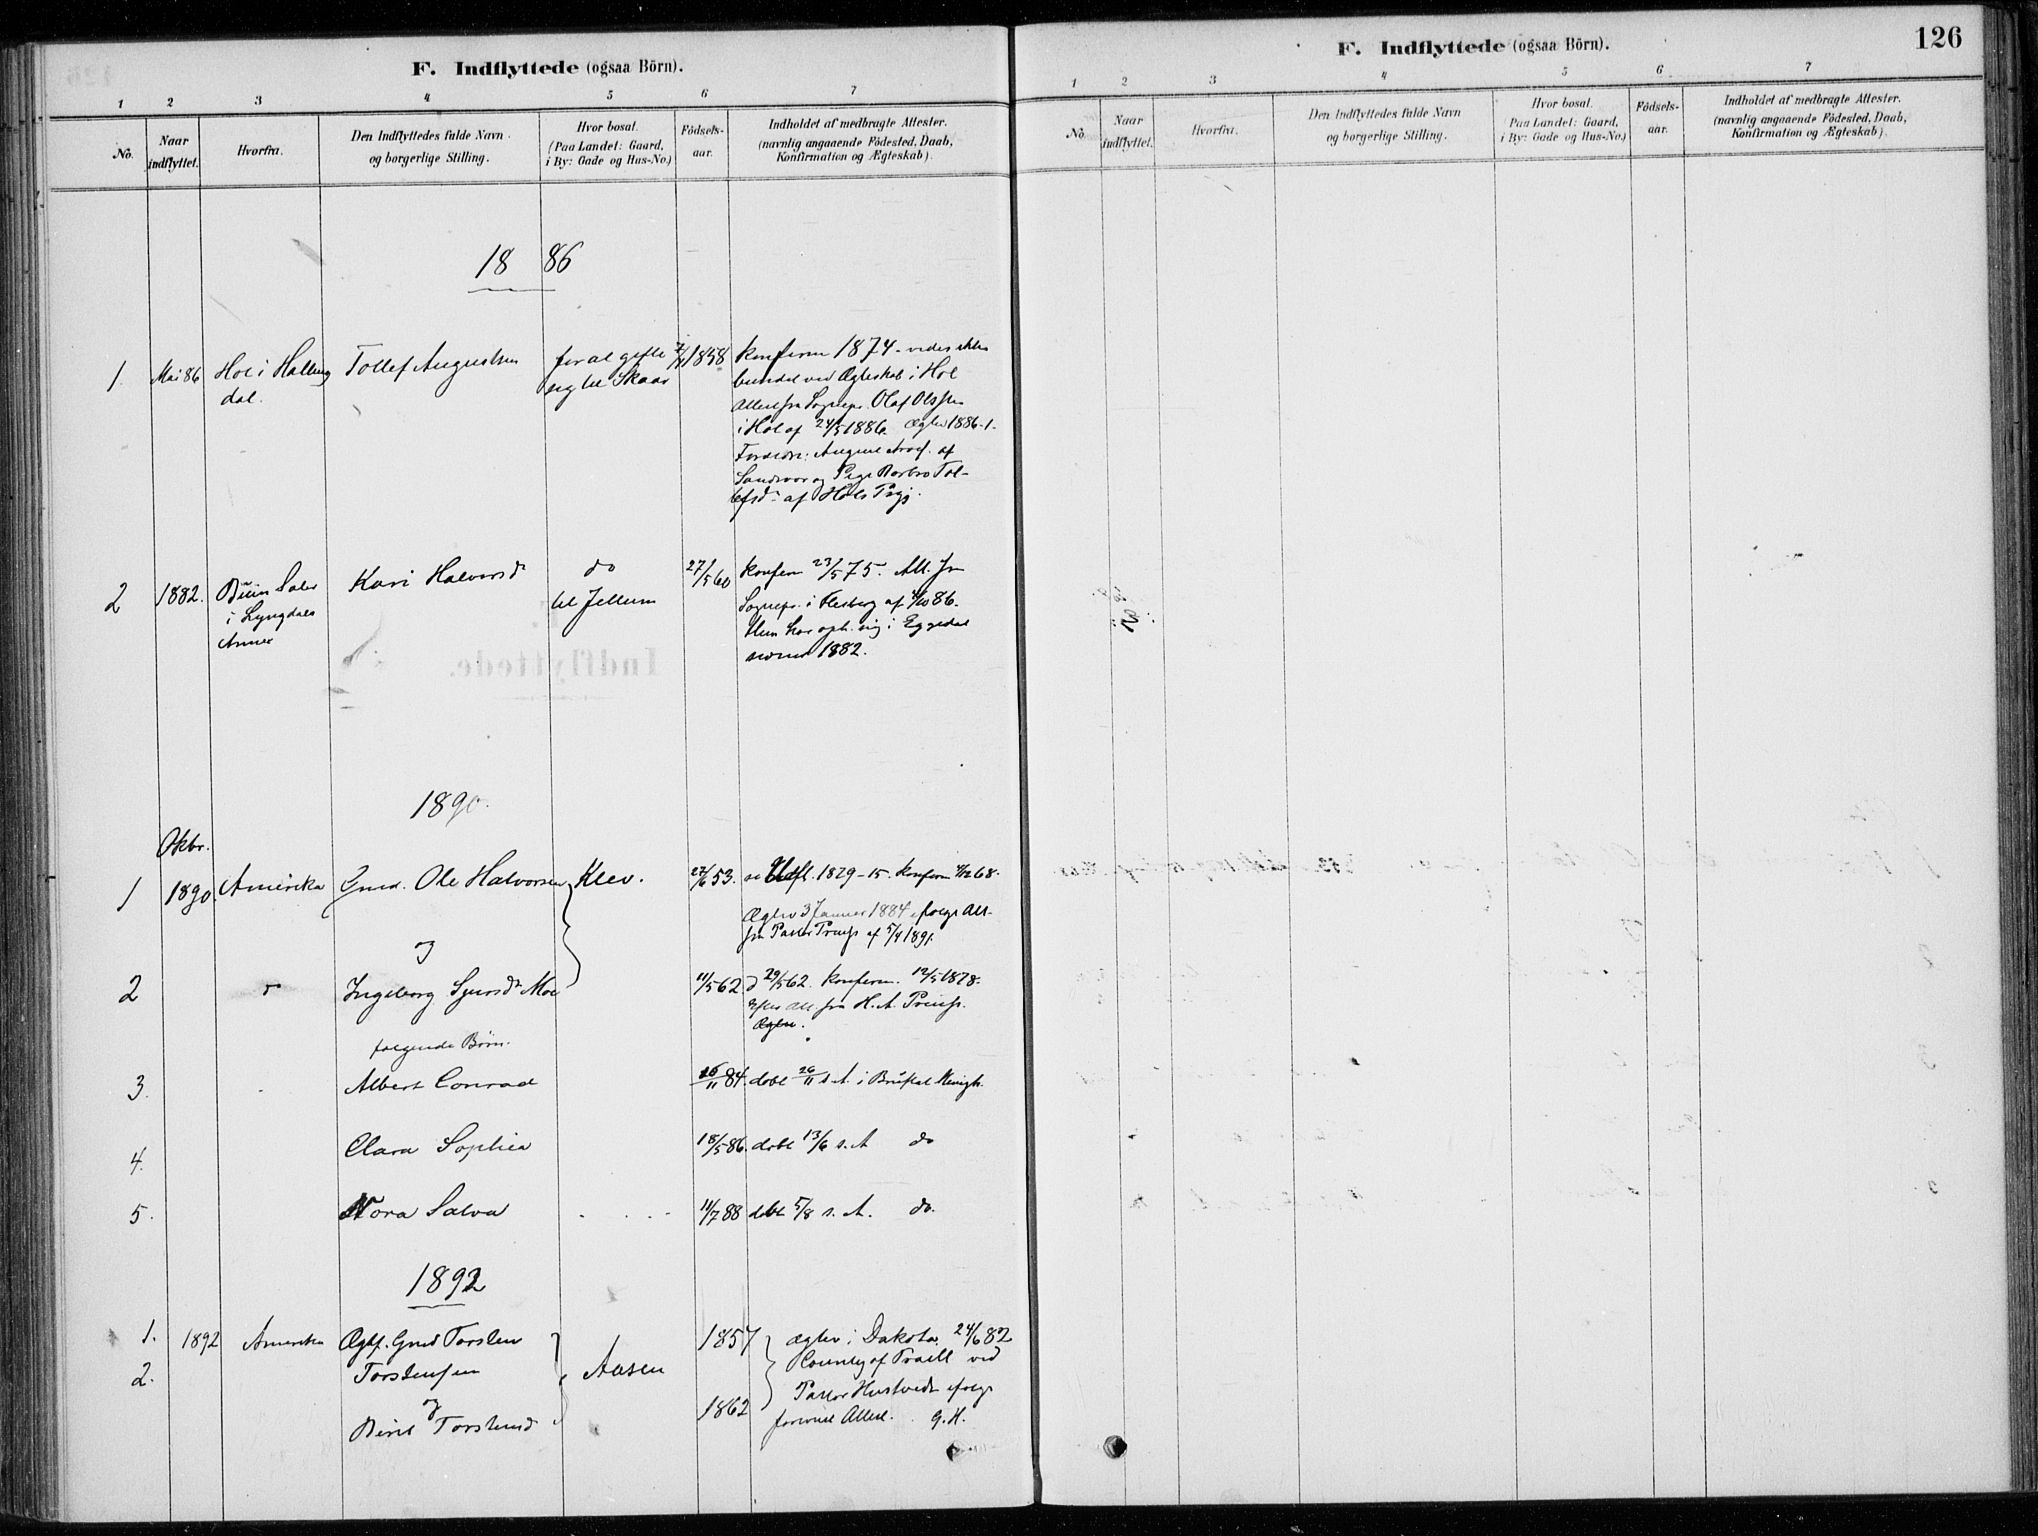 F. Indflyttede (ogsaa Börn).
1 2 3 4 5 6 7
No. Naar indflyttet. Hvorfra. Den Indflyttedes fulde Navn og borgerlige Stilling. Hvor bosat. (Paa Landet: Gaard, i By: Gade og Hus-No.) Födsels-aar. Indholdet af medbragte Attester. (navnlig angaaende Födested, Daab, Konfirmation og Ægteskab).
18 86
1. Mai 86 Hol i Halling Tollef Augustsen for at gifte 1858 Konfirm 1874 - vides ikke
dal. sig til Skaar bundet ved Ægteskab i Hol
Attest fra Sognepr. Olaf Olssen
i Hol af 24/5 1886. Ægtev 1886-1.
af
Sandvor og Pige Barbro Tol-
lefsd. af Hols Prgj.
2 1882. Kari Halvorsd do 27/5 60 Konfirm 23/5 75. Att. fra
i Lyngdals til Jellum Sognepr. i Flesberg af 86.
Annex Hun har oph. sig i Eggedal
siden 1882.
Indflyttede.
1890.
Oktbr.
1 1890. Amerika Gmd. Ole Halvorsen Klev. 27/6 53. se Udfl. 1879-15. Konfirm 68.
Ægtev 3 Januar 1884 ifølge Att-
fra Pastor af 5/4 1891.
og
2 Ingeborg Sjursdr Moe 11/5 62 d 29/5 62. Konfirm. 12/5 1878.
efter Att fra H. A.
Ægtev.
følgende Børn.
3. Albert Conrad 84. døbt 26/11 s. A. i Menigh.
4. Clara Sophia 18/5 86. døbt 13/6 s. A do
5. Nora Salva 11/7 88 døbt 5/8 s. A. do.
1892
1. 1892 Amerika Ægtf. Gmd Torsten 1857 Ægtev i Dakota 24/6 82
2. Torstensen Aasen County of Traill ved
og 1862 Pastor Hustvedt ifølge
Berit Torstensd forevist Attest. G. H.
F. Indflyttede (ogsaa Börn).
126
1 2 3 4 5 6 7
No. Naar indflyttet. Hvorfra. Den Indflyttedes fulde Navn og borgerlige Stilling. Hvor bosat. (Paa Landet: Gaard, i By: Gade og Hus-No.) Födsels-aar. Indholdet af medbragte Attester. (navnlig angaaende Födested, Daab, Konfirmation og Ægteskab).